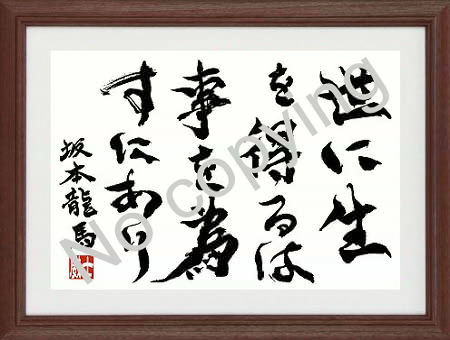 世に生
を得るは
事を為
すにあり
坂本龍馬
No copying